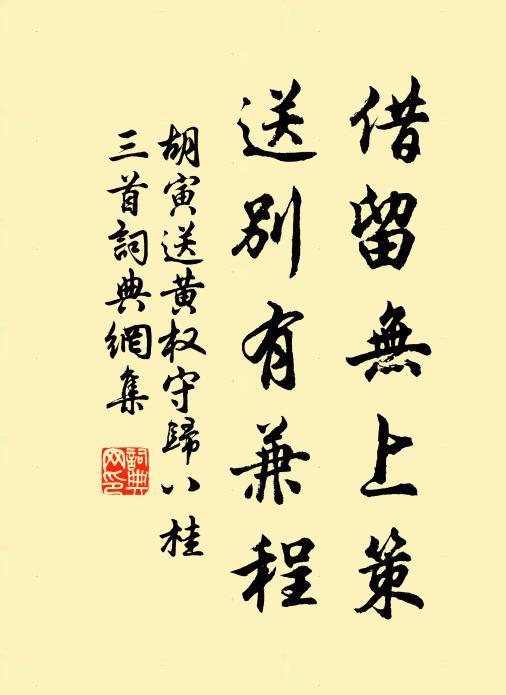 借留無上策
送別有兼程
胡寅送黄权守歸八桂
三首詞典網集
詞典网印